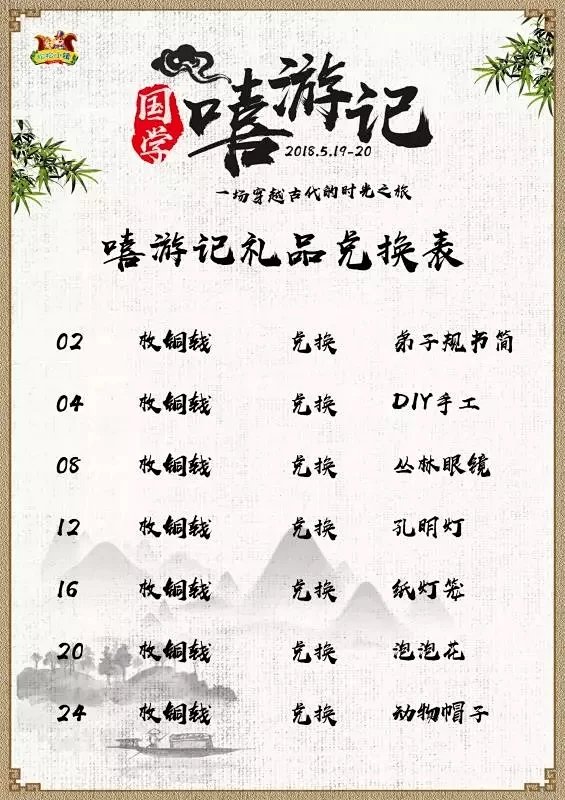 国学
嘻游记
2018.5.19-20
一场穿越古代的时光之旅
嘻游记礼品兑换表
02 枚铜钱 兑换 弟子规书简
04 枚铜钱 兑换 DIY手工
08 枚铜钱 兑换 丛林眼镜
12 枚铜钱 兑换 孔明灯
16 枚铜钱 兑换 纸灯笼
20 枚铜钱 兑换 泡泡花
24 枚铜钱 兑换 动物帽子